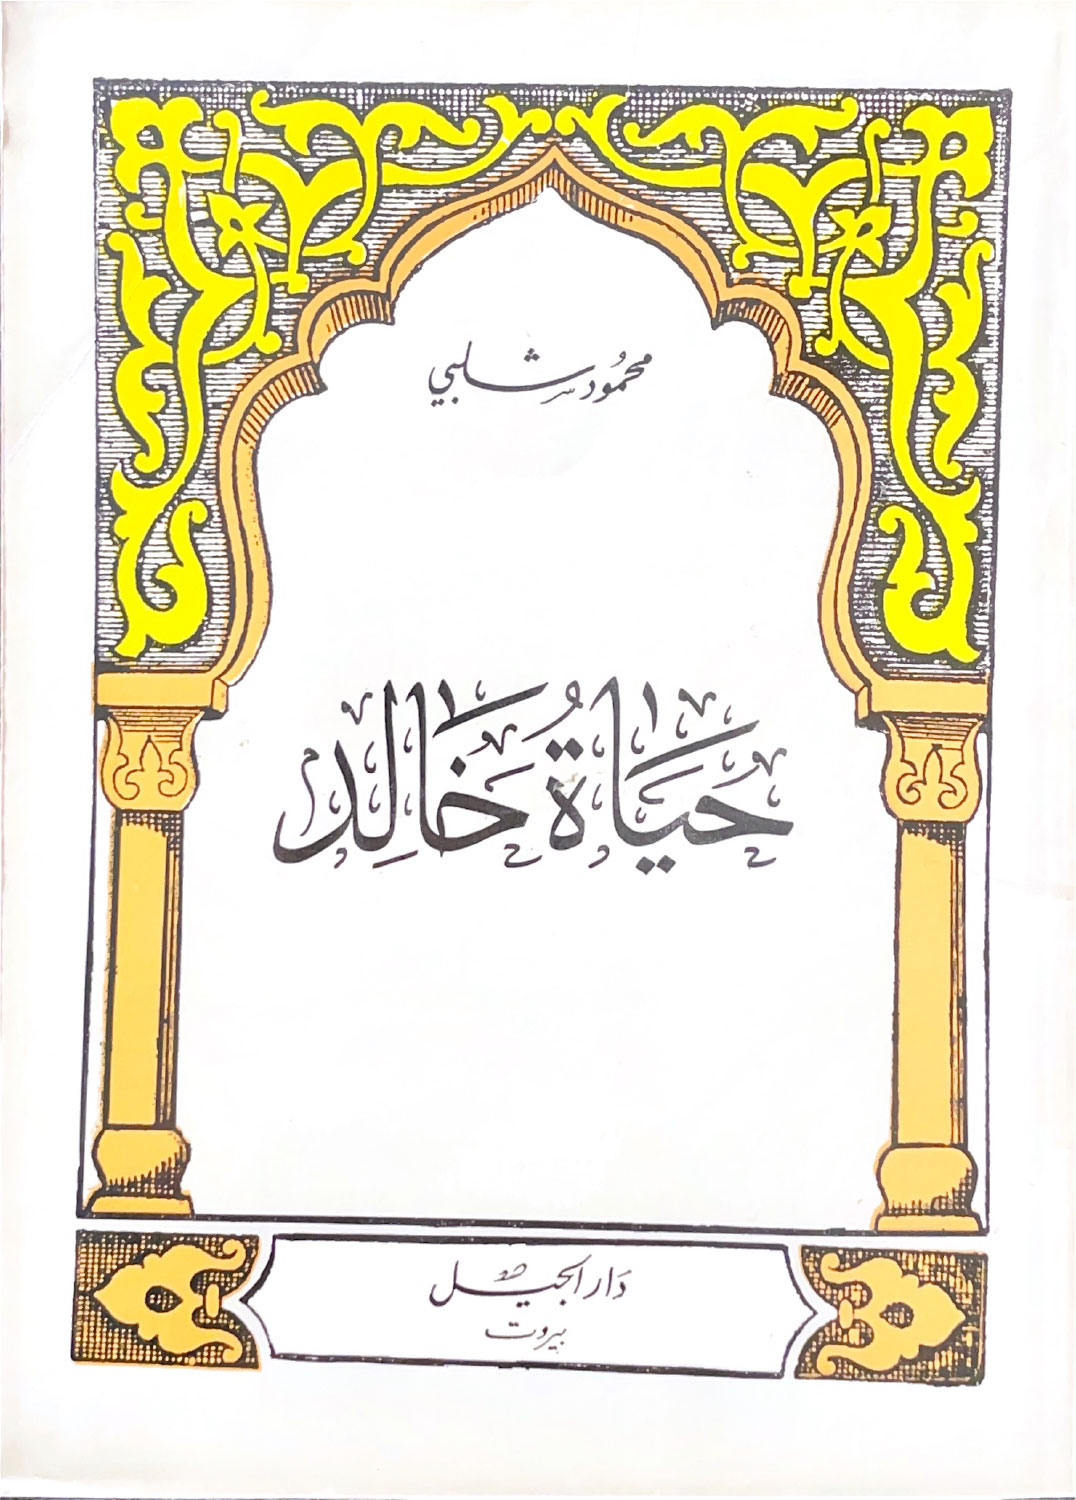 محمُود شلبي
حَيَاةُ خَالِد
دَار الجيل
بيروت